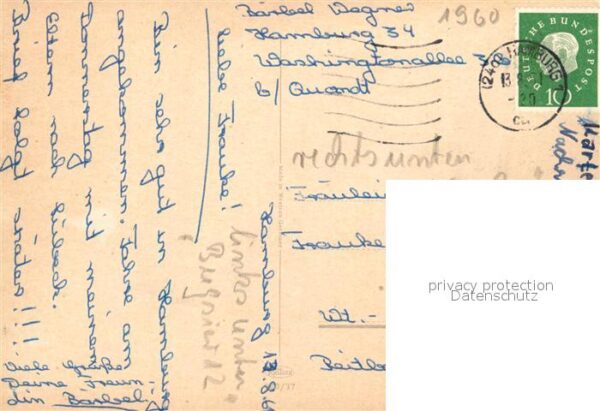 Bärbel Wagner
Hamburg 34
Washingtonallee
b/ Quandt
1960
DEUTSCHE BUNDESPOST
10
(24a) HAMBURG
13.
rechts unten
Fräulein
Frauke
Wt.-
privacy protection
Datenschutz
Hamburg 12.8.
Liebe Frauke!
Bin sehr gut in Hamburg
angekommen. Fahre am
Donnerstag mit meinen
Eltern nach Lübeck.
Brief folgt
später!!!
Viele Grüße
Deine Freun-
din Bärbel
links unten